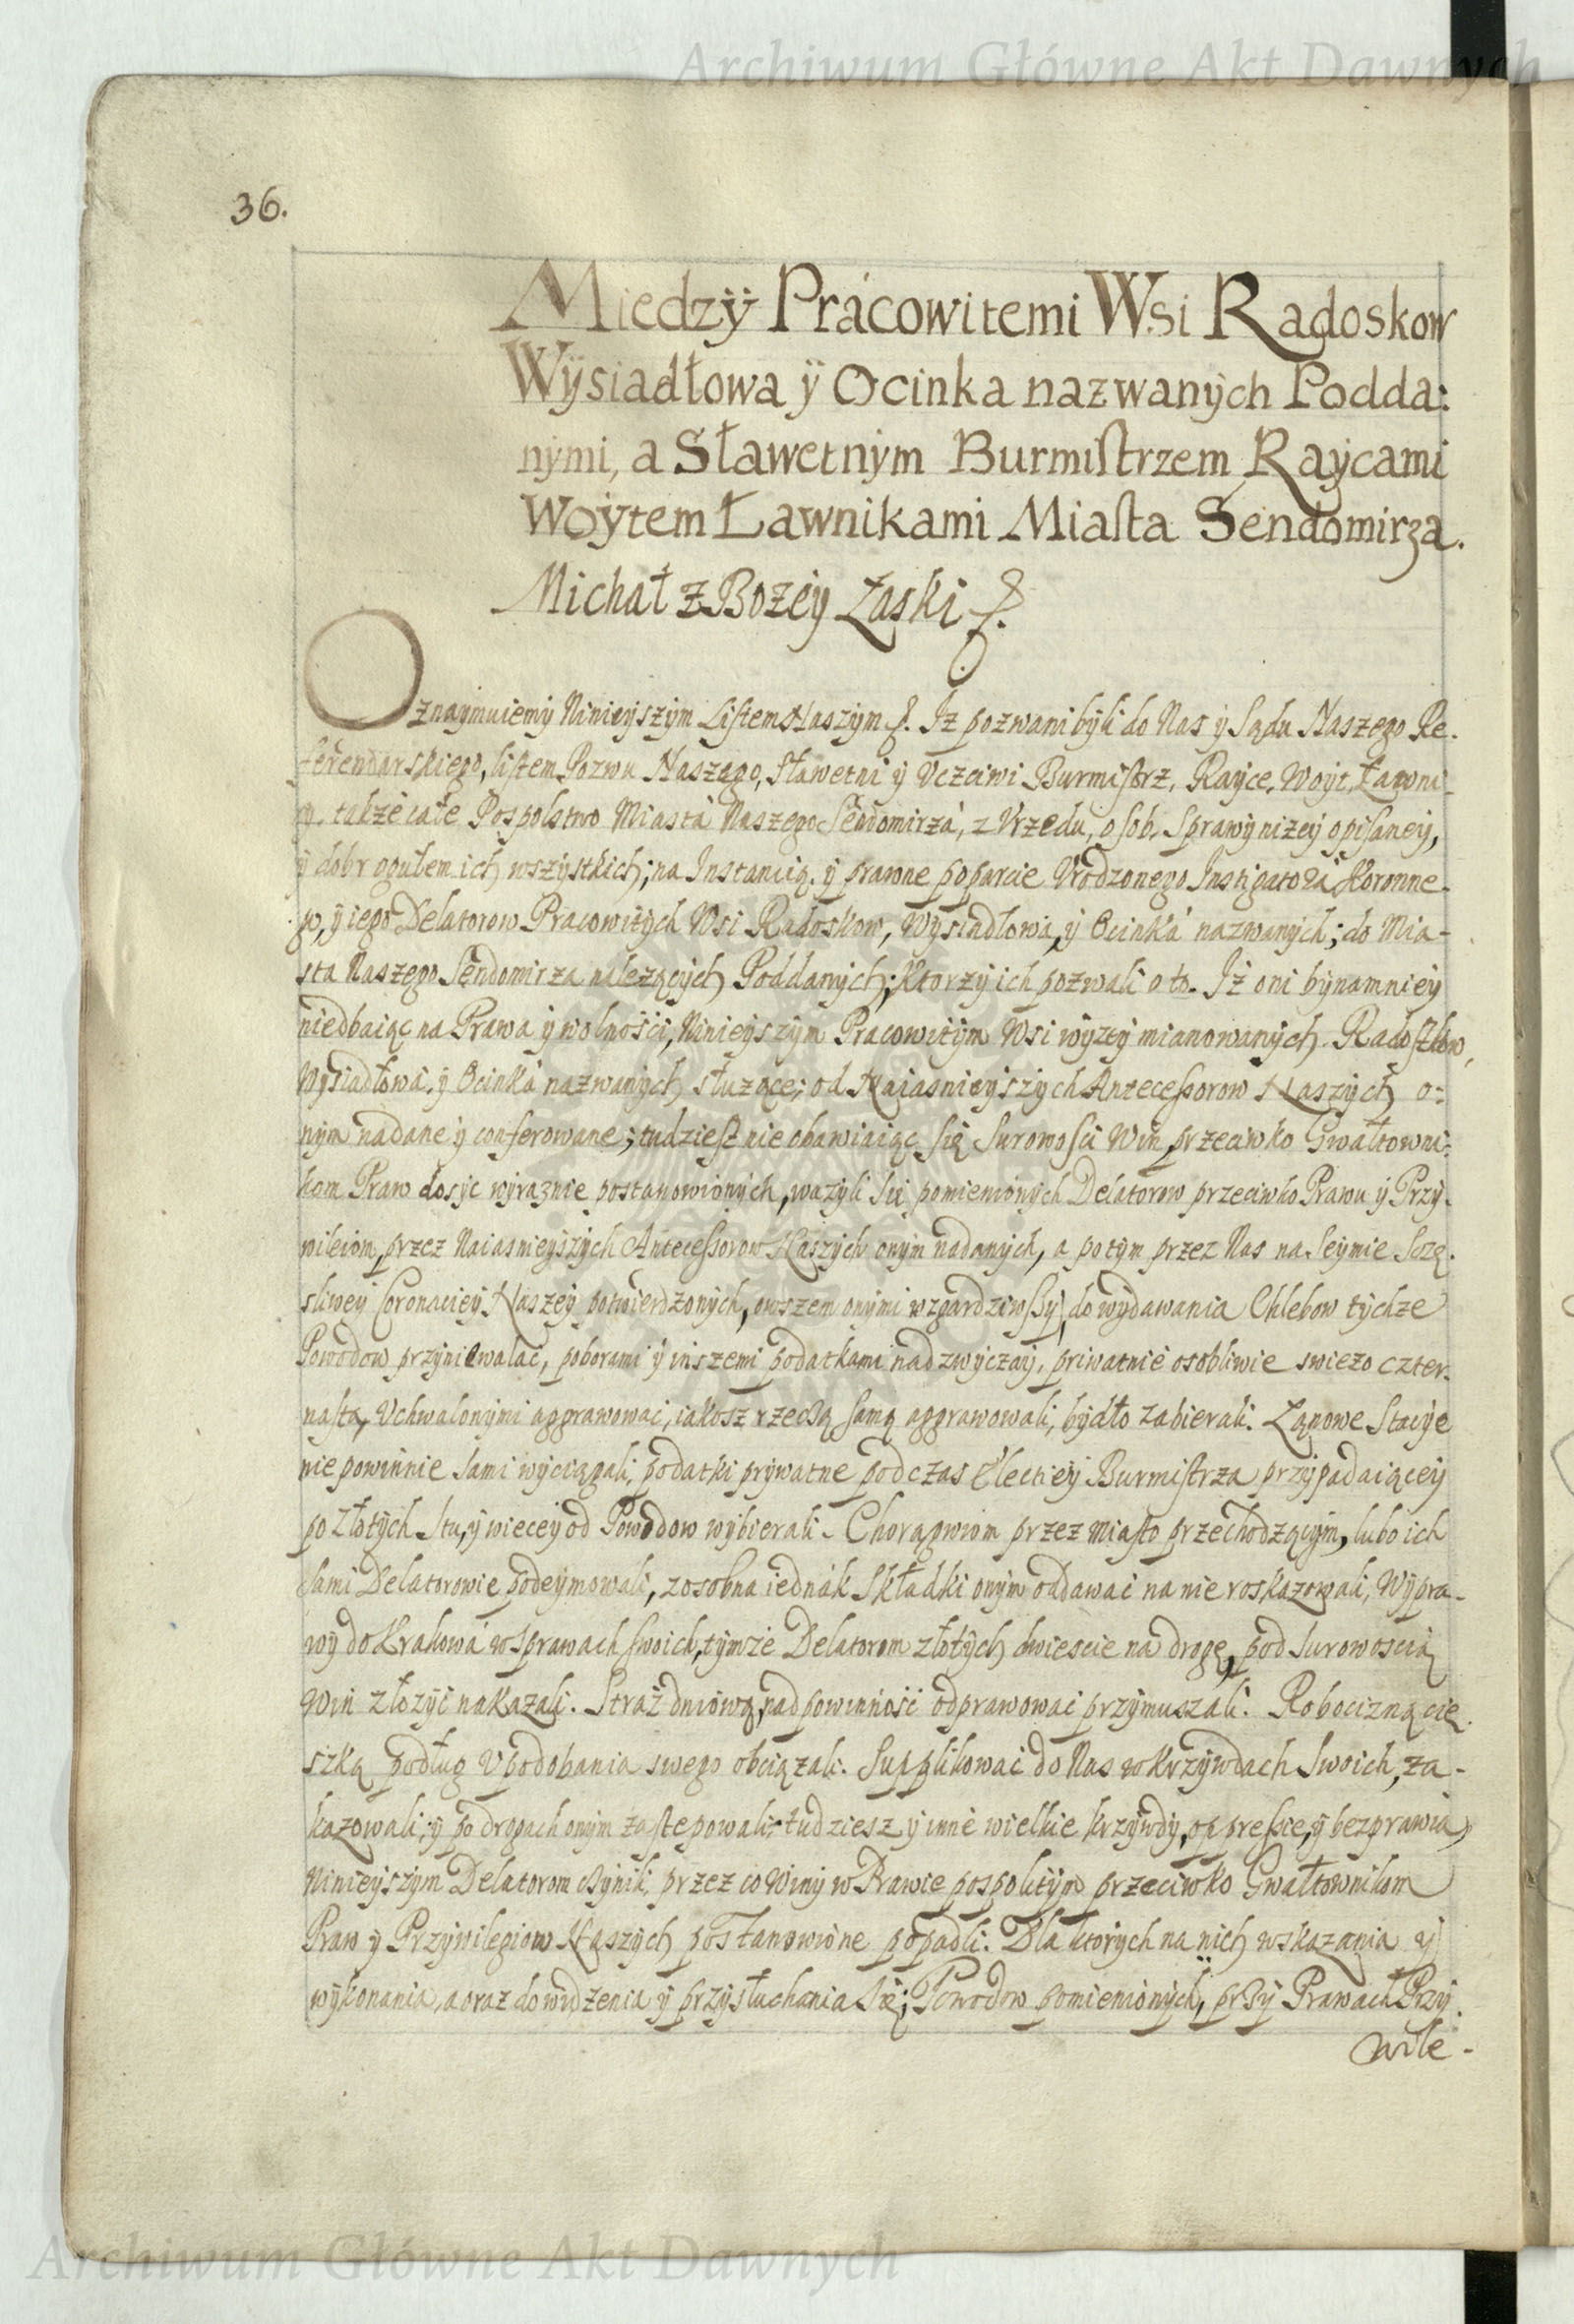 Archiwum Główne Akt Dawnych
36.
Między Prácowitemi Wsi Radoskow
Wysiadłowa ÿ Ocinka nazwanych Podda:
nymi, a Sławetnym Burmistrzem Raycami
Woytem Ławnikami Miasta Sendomirza.
Michał z Bozey Łaski &.
Oznaymuiemy Ninieyszym Listem Naszym &. Iz pozwani byli do Nas y Sądu Naszego Re-
ferendarskiego, listem Pozwu Naszego, Sławetni y Uczciwi Burmistrz, Rayce, Woyt, Ławni-
cy, także całe Pospolstwo Miastá Naszego Sendomirzá, z Vrzedu, osob, Sprawy niżey opisaney,
y dobr ogułem ich wszystkich; na Instancią y prawne poparcie Vrodzonego Instigatorá Koronne-
go, y iego Delatorow Pracowitych Wsi Radoskow, Wysiadłowa, y Ocinká nazwanych; do Mia-
sta Naszego Sendomirza należących Poddanych; Ktorzy ich pozwali o to. Iż oni bynamniey
niedbaiąc na Prawa y wolności, Ninieyszym Pracowitym Wsi wyzey mianowanych Radoszkow,
Wysiadłowá, y Ocinká nazwanych służące; od Naiasnieyszych Antecessorow Naszych o:
nym nadane y conferowane; tudziesz nie obawiaiąc się Surowosci Win, przeciwko Gwałtowni:
kom Praw dosyc wyraznie postanowionych, wazyli się pomienionych Delatorow przeciwko Prawu y Przy-
wileiom, przez Naiasnieyszych Antecessorow Naszych onym nadanych, a potym przez Nas na Seymie Szczę-
sliwey Coronaciey Naszey potwierdzonych, owszem onymi wzgardziwszy, do wydawania Chlebow tychze
Powodow przyniewalać, poborami y inszemi podatkami nadzwyczay, priwatnie osobliwie swiezo czter-
nastą, Uchwalonymi aggrawować, iakosz rzeczą samą aggrawowali, bydło zabierali. Łanowe Stacye
nie powinnie Sami wyciągali, podatki prywatne podczas Electiey Burmistrza przypadaiącey
po złotych Stu, y wiecey od Powodow wybierali. Chorągwiom przez Miasto przechodzącym, lubo ich
Sami Delatorowie podeymowali, zosobna iednák Składki onym oddawać na nie roskazowali, Wypra-
wy do Krakowá w Sprawach swoich, tymze Delatorom złotych dwiescie na drogę, pod Surowoscią
Win złożyć nakazali. Straż dniową, nad powinność odprawować przymuszali. Robocizną cię-
szką podług Upodobania swego obciązali. Supplikować do Nas w Krzywdach Swoich, za-
kazowali, y po drogach onym zastepowali, tudziesz y inne wielkie krzywdy, oppressie, y bezprawia,
Ninieyszym Delatorom czynili, przez co Winy w Prawie pospolitym przeciwko Gwałtownikom
Praw y Przywilegiow Naszych postanowione popadli. Dla ktorych na nich wskazania y
wykonania, a oraz do widzenia y przysłuchania się; Powodow pomienionych, przy Prawach Przy
wile-
Archiwum Główne Akt Dawnych